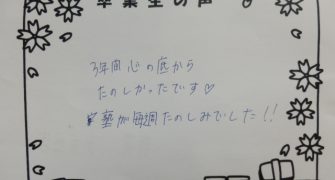 卒業生の声
3年間心の底から
たのしかったです♡
部が毎週たのしみでした!!